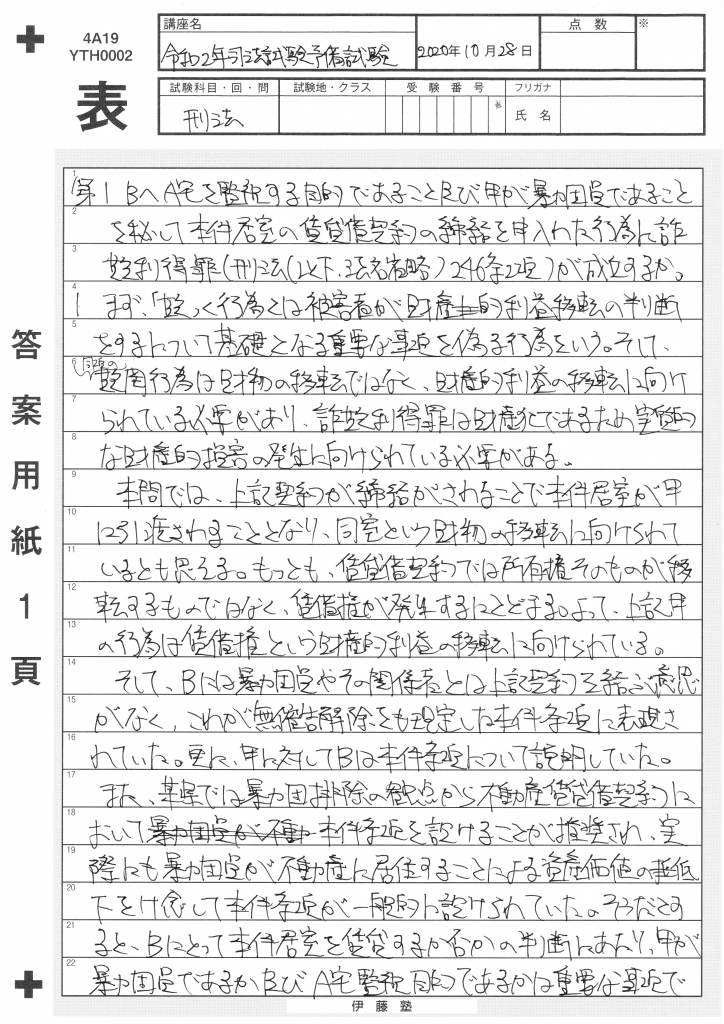 4A19
YTH0002
表
講座名
令和2年司法試験予備試験
2020年10月28日
点 数
※
試験科目・回・問
刑法
試験地・クラス
受 験 番 号
フリガナ
氏 名
答案用紙1頁
1 第1 Bへ A宅を監視する目的であること及び甲が暴力団員であること
2 を秘して本件居室の賃貸借契約の締結を申入れた行為に詐
3 欺利得罪(刑法(以下、法名省略)246条2項)が成立するか。
4 1 まず、「欺」く行為とは被害者が財産的利益移転の判断
5 をするについて基礎となる重要な事項を偽る行為をいう。そして、
6 同項の 欺罔行為は財物の移転ではなく、財産的利益の移転に向け
7 られている必要があり、詐欺利得罪は財産犯であるため実質的
8 な財産的損害の発生に向けられている必要がある。
9 本問では、上記契約が締結がされることで本件居室が甲
10 に引渡されることとなり、同室という財物の移転に向けられて
11 いるとも思える。もっとも、賃貸借契約では所有権そのものが移
12 転するものではなく、賃借権が発生するにとどまる。よって、上記甲
13 の行為は賃借権という財産的利益の移転に向けられている。
14 そして、Bには暴力団員やその関係者とは上記契約を結ぶ意思
15 がなく、これが無催告解除をも規定した本件条項に表現さ
16 れていた。更に、甲に対してBは本件条項について説明していた。
17 また、某県では暴力団排除の観点から不動産賃貸借契約に
18 おいて本件条項を設けることが推奨され、実
19 際にも暴力団員が不動産に居住することによる資産価値の低
20 下をけ念して本件条項が一般的に設けられていた。そうだとす
21 ると、Bにとって本件居室を賃貸するか否かの判断にあたり、甲が
22 暴力団員であるか及びA宅監視目的であるかは重要な事項で
伊藤塾